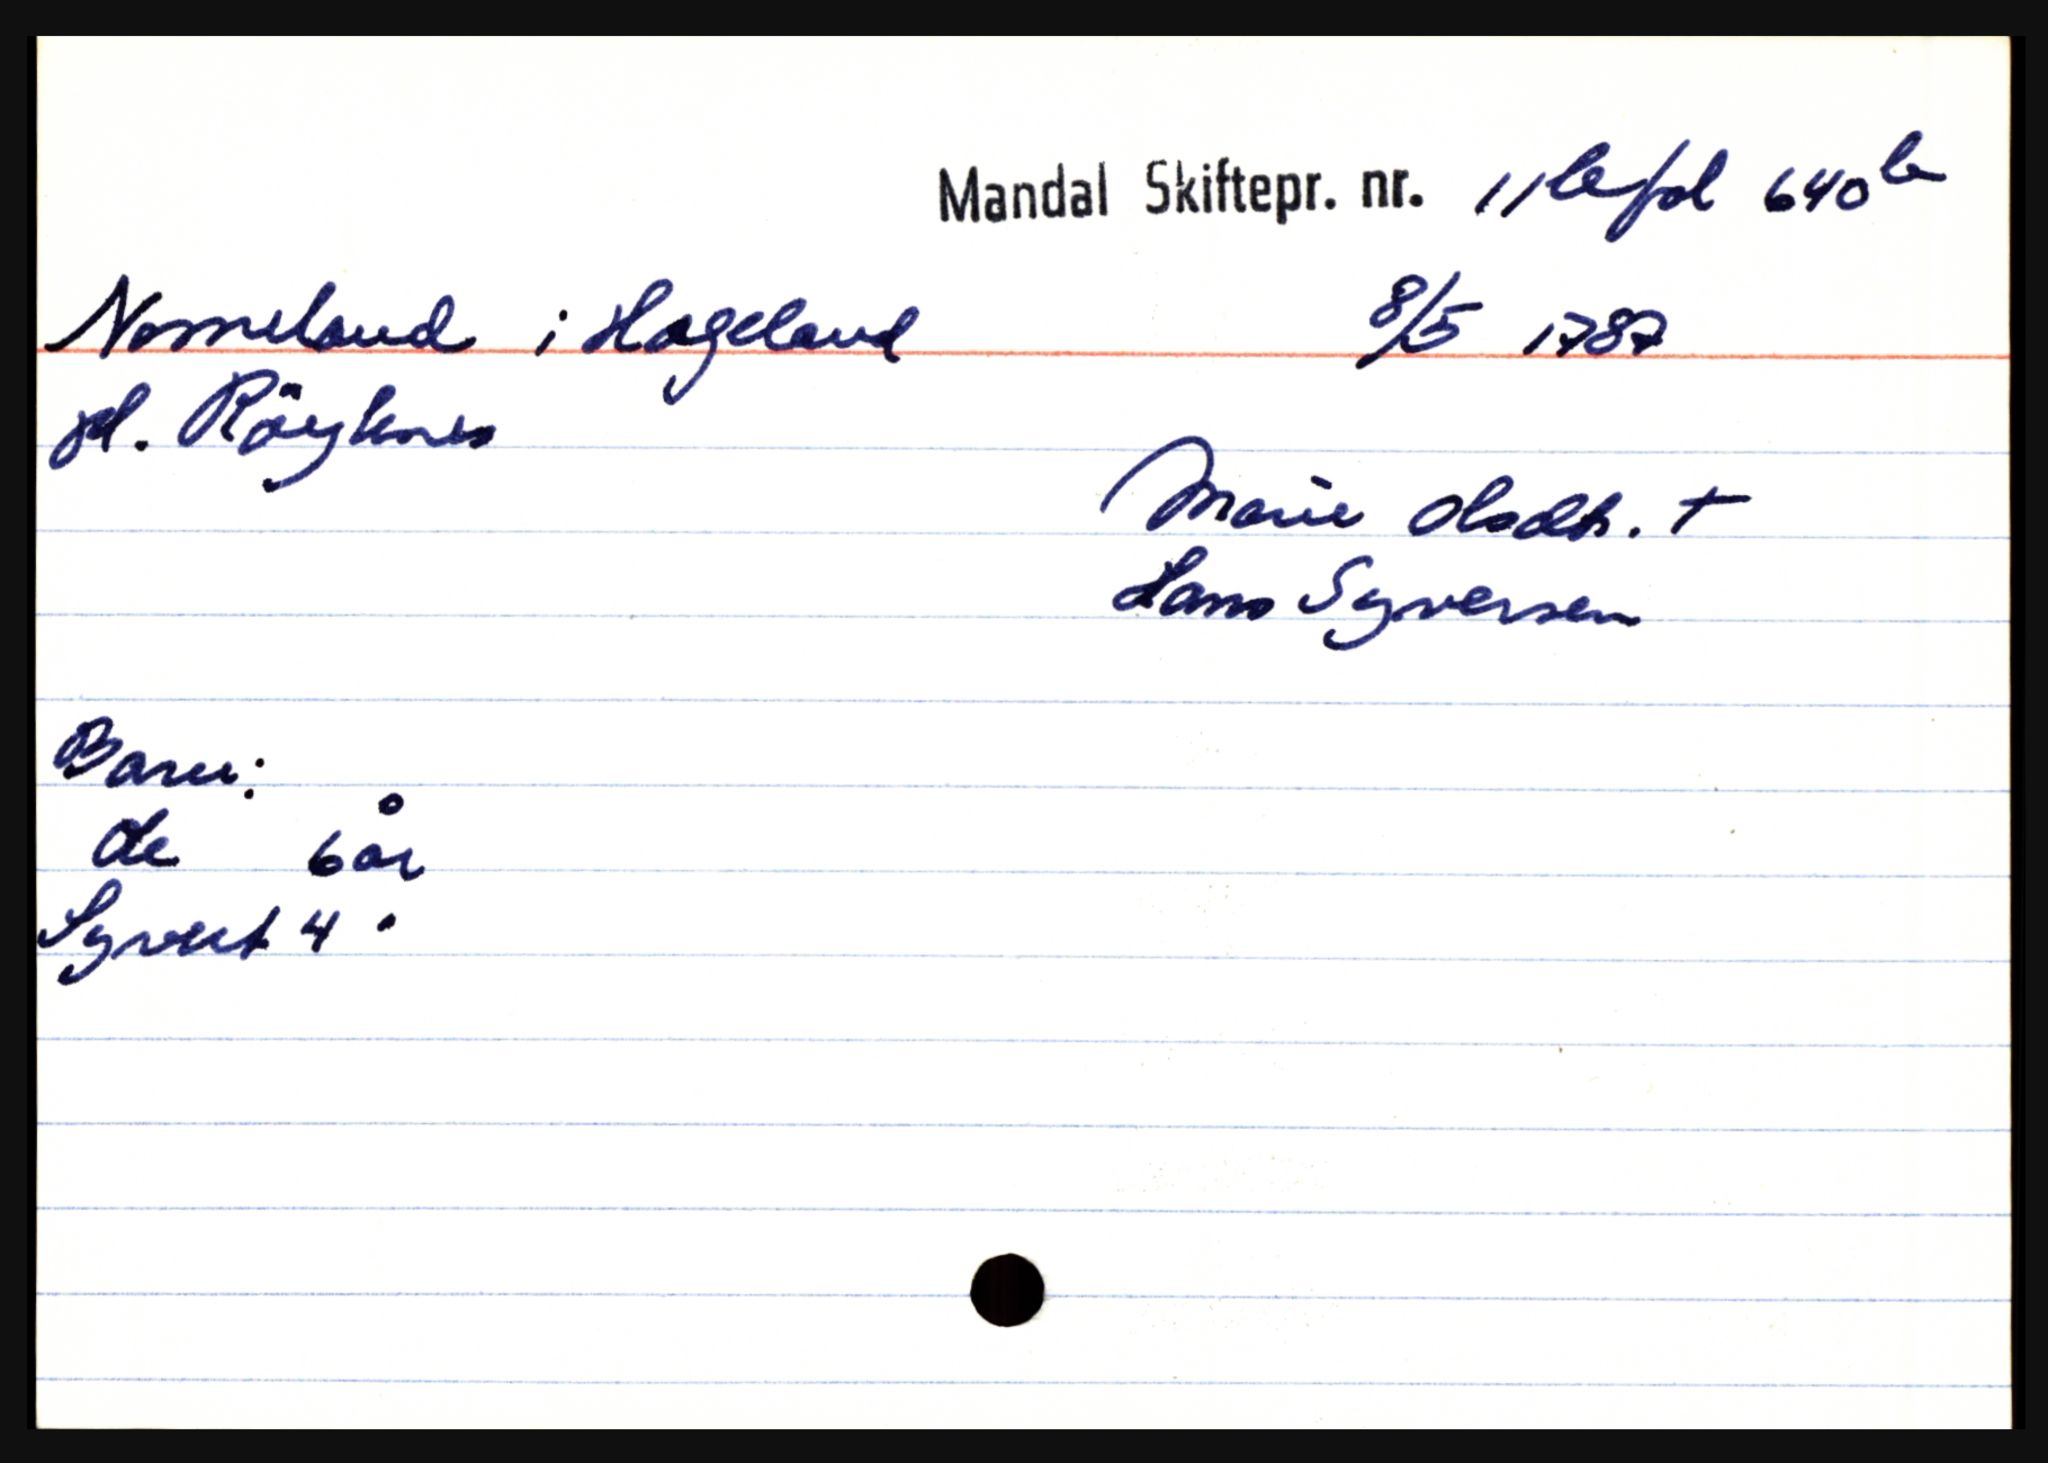 Mandal Skiftepr. nr. 11b fol 640b
Nomeland i Hageland 8/5 1787
pl. Röyknes
Marie Olsdtr. +
Lars Syversen
Barn:
Ole 6 år
Syvert 4 "